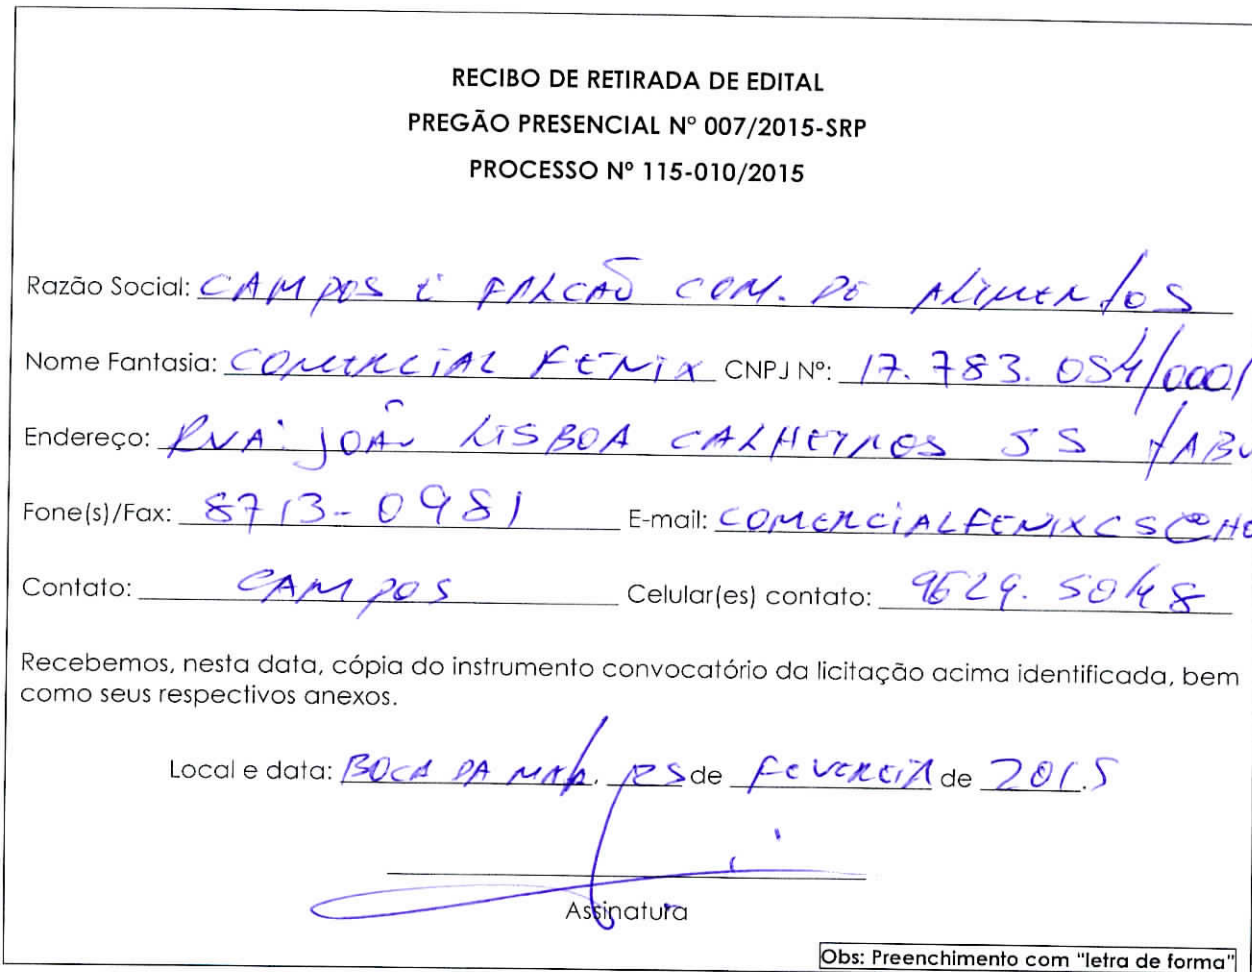 RECIBO DE RETIRADA DE EDITAL
PREGÃO PRESENCIAL Nº 007/2015-SRP
PROCESSO Nº 115-010/2015
Razão Social: CAMPOS E FALCÃO COM. DE ALIMENTOS
Nome Fantasia: COMERCIAL FENIX CNPJ Nº: 17.783.054/0001
Endereço: RUA: JOÃO LISBOA CALHEIROS 55 TABU
Fone(s)/Fax: 8713-0981 E-mail: COMERCIALFENIXCS@HO
Contato: CAMPOS Celular(es) contato: 9629.5048
Recebemos, nesta data, cópia do instrumento convocatório da licitação acima identificada, bem
como seus respectivos anexos.
Local e data: BOCA DA MATA. de FEVEREIRO de 2015
Assinatura
Obs: Preenchimento com "letra de forma"